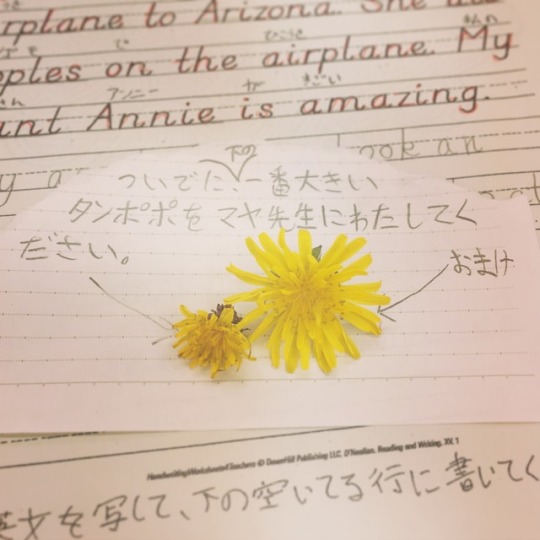 rplane to Arizona. She
ples on the airplane. My
unt Annie is amazing.
アンニー
が
すごい
took an
下の
ついでに、一番大きい
タンポポを マヤ先生にわたしてく
ださい。
おまけ
HandwritingWorksheets4Teachers © DownHill Publishing LLC. D'Nealian, Reading and Writing, XV. 1
英文を写して、下の空いてる行に書いてく